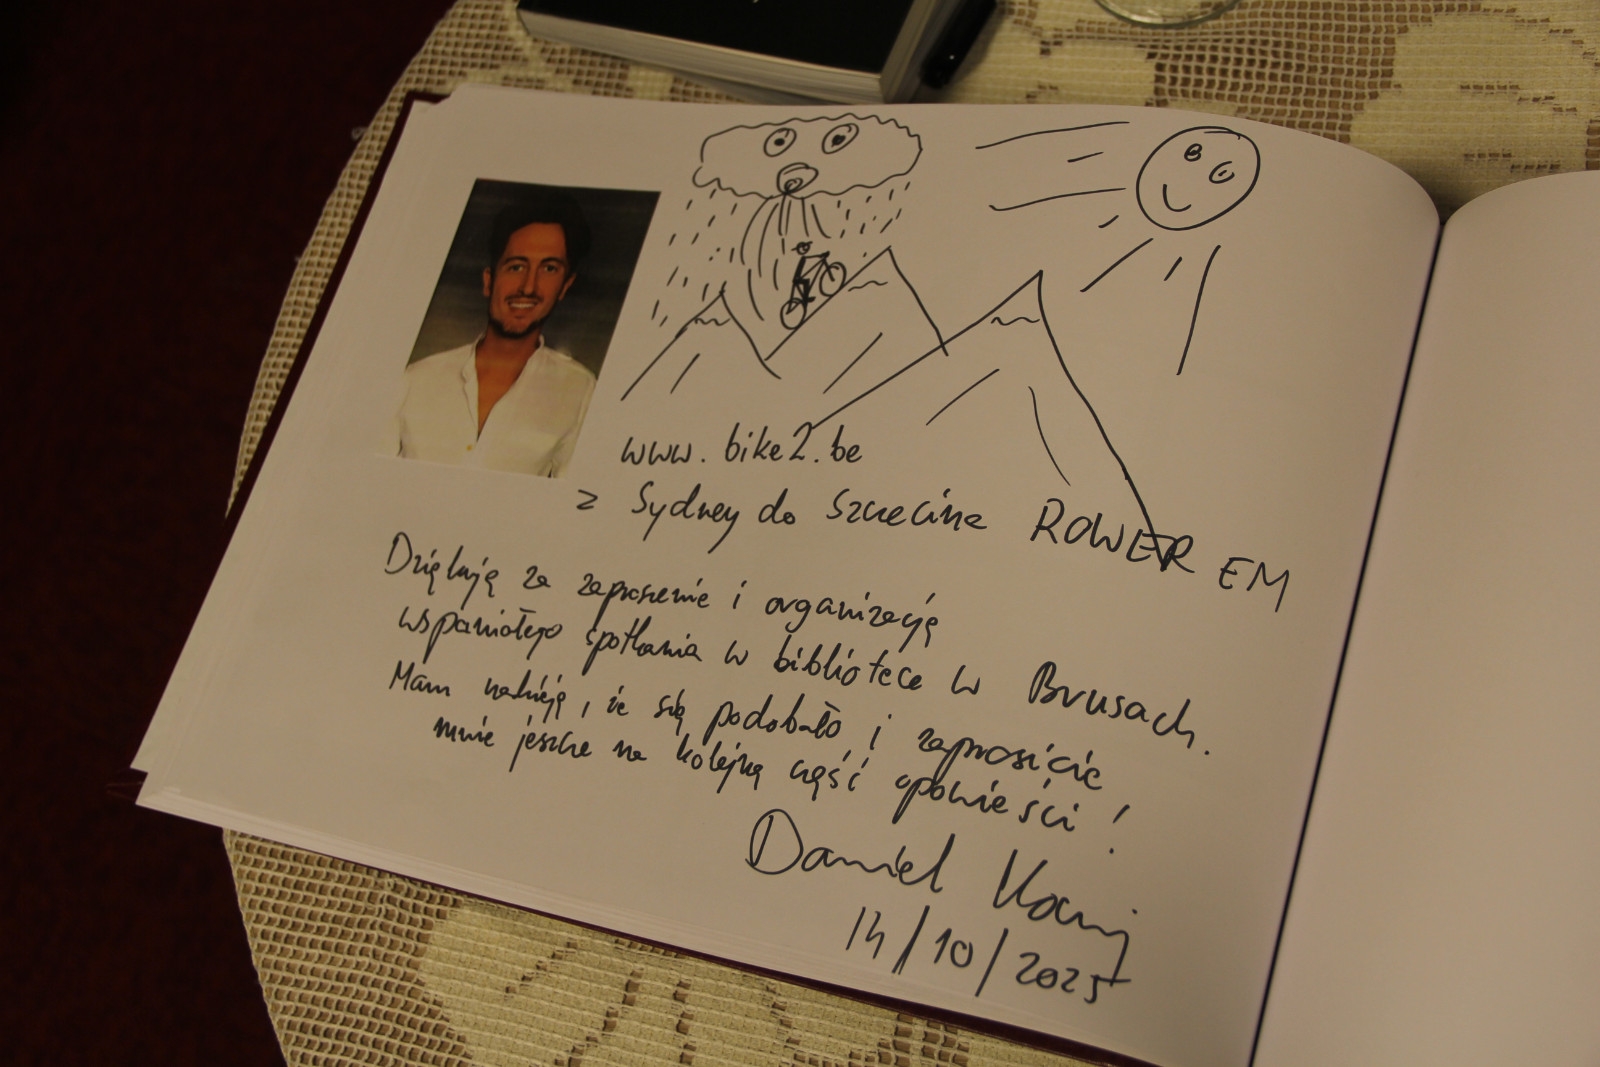 www.bike2.be
z Sydney do Szczecina ROWER EM
Dziękuję za zaproszenie i organizację
wspaniałego spotkania w bibliotece w Brusach.
Mam nadzieję, że się podobało i zaprosicie
mnie jeszcze na kolejną część opowieści!
Daniel
14/10/2025